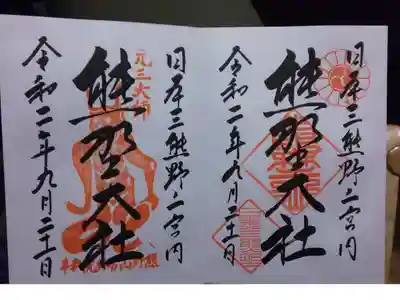 日本三熊野二宮内
熊野大社
令和二年九月二十一日
日本三熊野二宮内
元三大師
熊野大社
令和二年九月二十一日